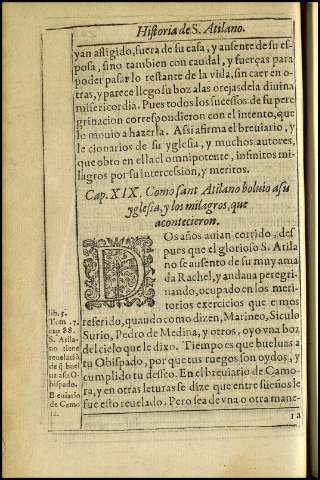 Historia de S. Atilano.
yan afligido, fuera de su casa, y ausente de su es-
posa, sino tambien con caudal, y fuerças para
poder passar lo restante de la vida, sin caer en o-
tras, y parece llego su boz alas orejas dela diuina
misericordia. Pues todos los sucessos de su pere
grinacion correspondieron con el intento, que
le mouio a hazerla. Assi afirma el breuiario, y
lecionarios de su yglesia, y muchos autores,
que obro en ella el omnipotente, infinitos mi-
lagros por su intercession, y meritos.
Cap. XIX. Como sant Atilano boluio a su
yglesia, y los milagros, que
acontecieron.
DOs años auian corrido, des
pues que el glorioso S. Atila
no se ausento de su muy ama
da Rachel, y andaua peregri-
nando, ocupado en los meri-
torios exercicios que emos
referido, quando como dizen, Marineo, Siculo
Surio, Pedro de Medina, y otros, oyo vna boz
del cielo que le dixo. Tiempo es que bueluas a
tu Obispado, por que tus ruegos son oydos, y
cumplido tu desseo. En el breuiario de Camo-
ra, y en otras leturas se dize que entre sueños le
fue esto reuelado. Pero sea de vna o otra mane-
ra
lib. 5.
Tom. 7.
cap 88.
S. Atila
no tiene
reuelació
de q̃ buel
ua a su O-
bispado.
Breuiario
de Camo